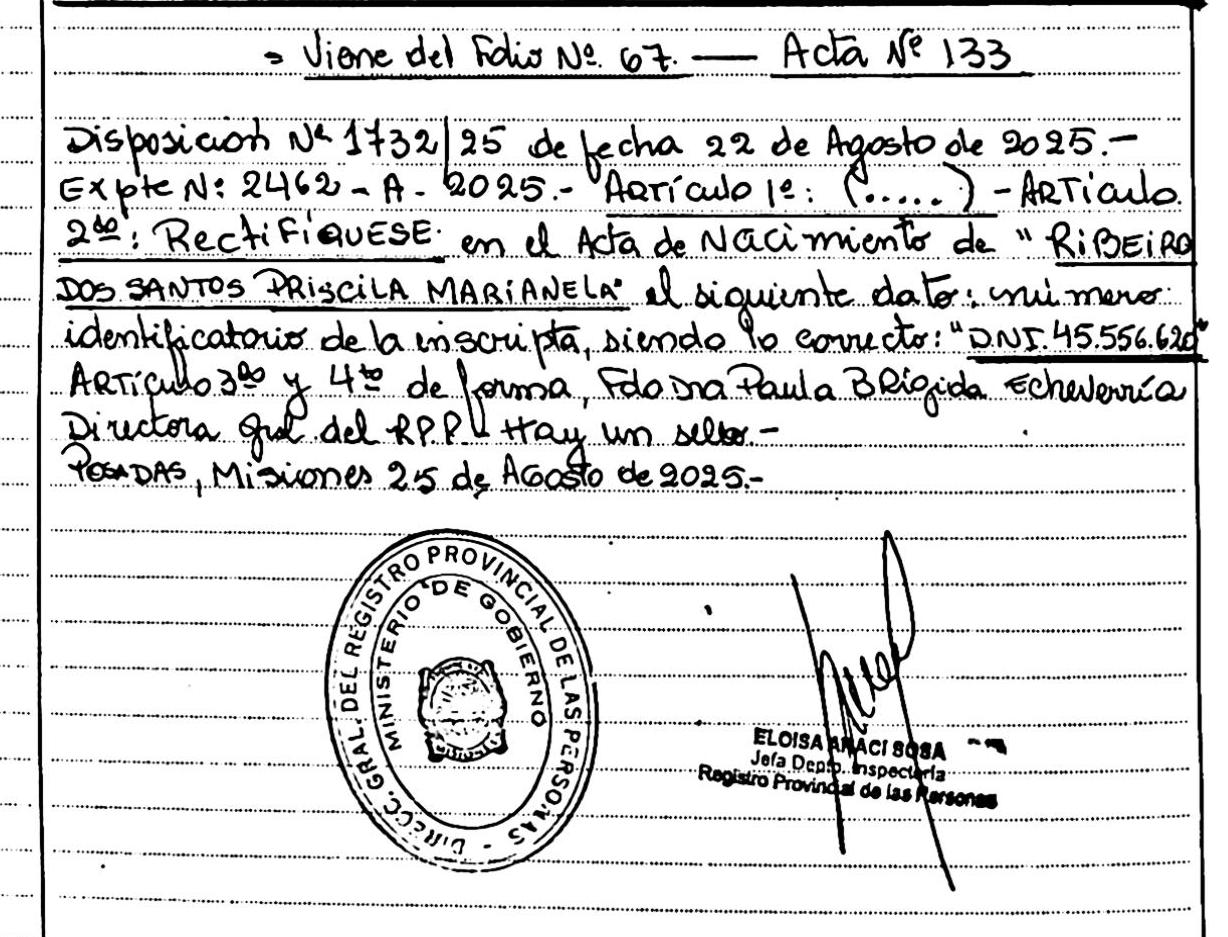 = Viene del Folio Nº. 67. — Acta Nº 133
Disposición Nº 1732/25 de fecha 22 de Agosto de 2025.-
Expte Nº: 2462 - A - 2025.- Artículo 1º: (.....) - Artículo
2do: RECTIFÍQUESE en el Acta de Nacimiento de "RIBEIRO
DOS SANTOS PRISCILA MARIANELA" el siguiente dato: número
identificatorio de la inscripta, siendo lo correcto: "D.N.I. 45.556.620"
Artículo 3ro y 4to de forma, Fdo Dra Paula Brígida Echeverría
Directora Gral del RPP. Hay un sello -
POSADAS, Misiones 25 de Agosto de 2025.-
DIRECC. GRAL. DEL REGISTRO PROVINCIAL DE LAS PERSONAS -
MINISTERIO DE GOBIERNO
ELOISA ARACI SOSA
Jefa Depto. Inspectoría
Registro Provincial de las Personas